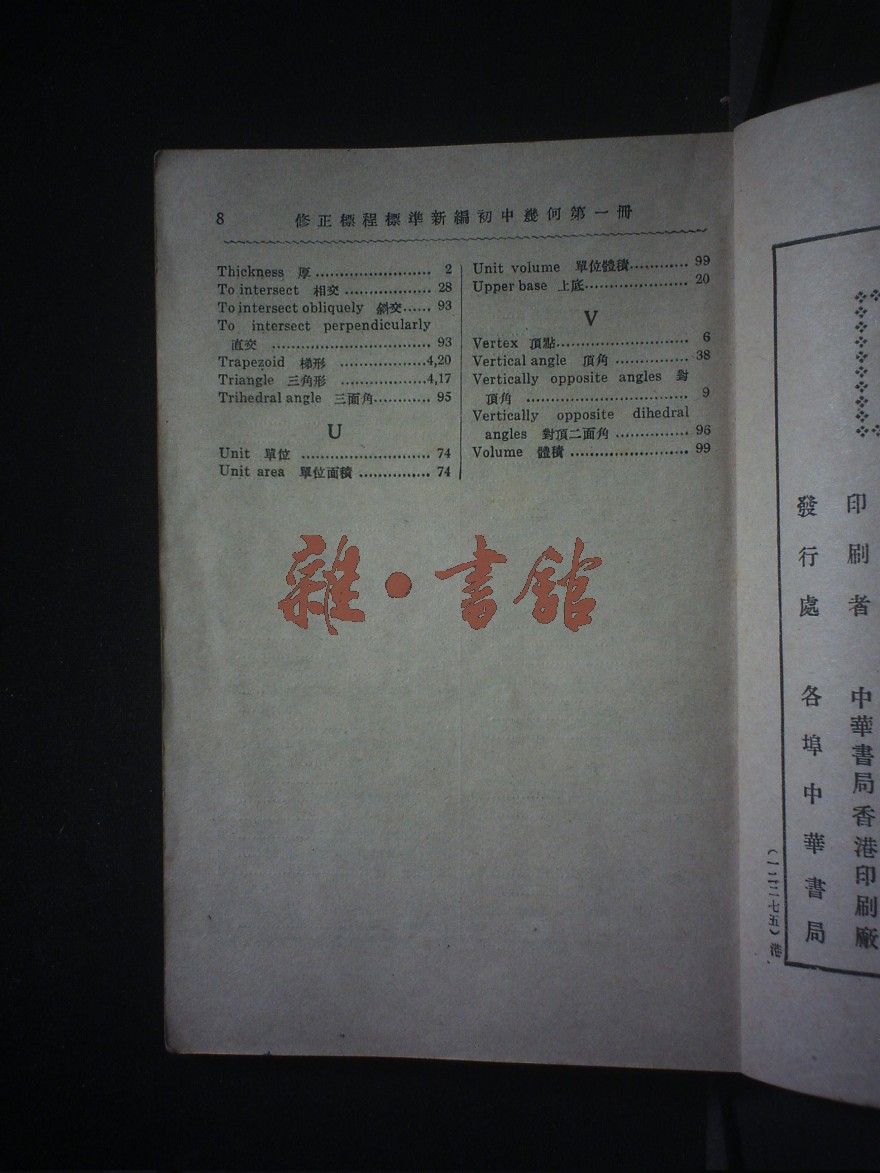 8 修正標程標準新編初中幾何第一冊
Thickness 厚 ........................ 2
To intersect 相交 .................. 28
To intersect obliquely 斜交...... 93
To intersect perpendicularly
直交 ................................. 93
Trapezoid 梯形 ..................4,20
Triangle 三角形 ..................4,17
Trihedral angle 三面角............ 95
U
Unit 單位 ........................... 74
Unit area 單位面積 ............... 74
Unit volume 單位體積............ 99
Upper base 上底..................... 20
V
Vertex 頂點........................... 6
Vertical angle 頂角 ............... 38
Vertically opposite angles 對
頂角 ................................. 9
Vertically opposite dihedral
angles 對頂二面角 ............... 96
Volume 體積 ........................ 99
雜·書館
印刷者 中華書局香港印刷廠
發行處 各埠中華書局
(一二二七五)港